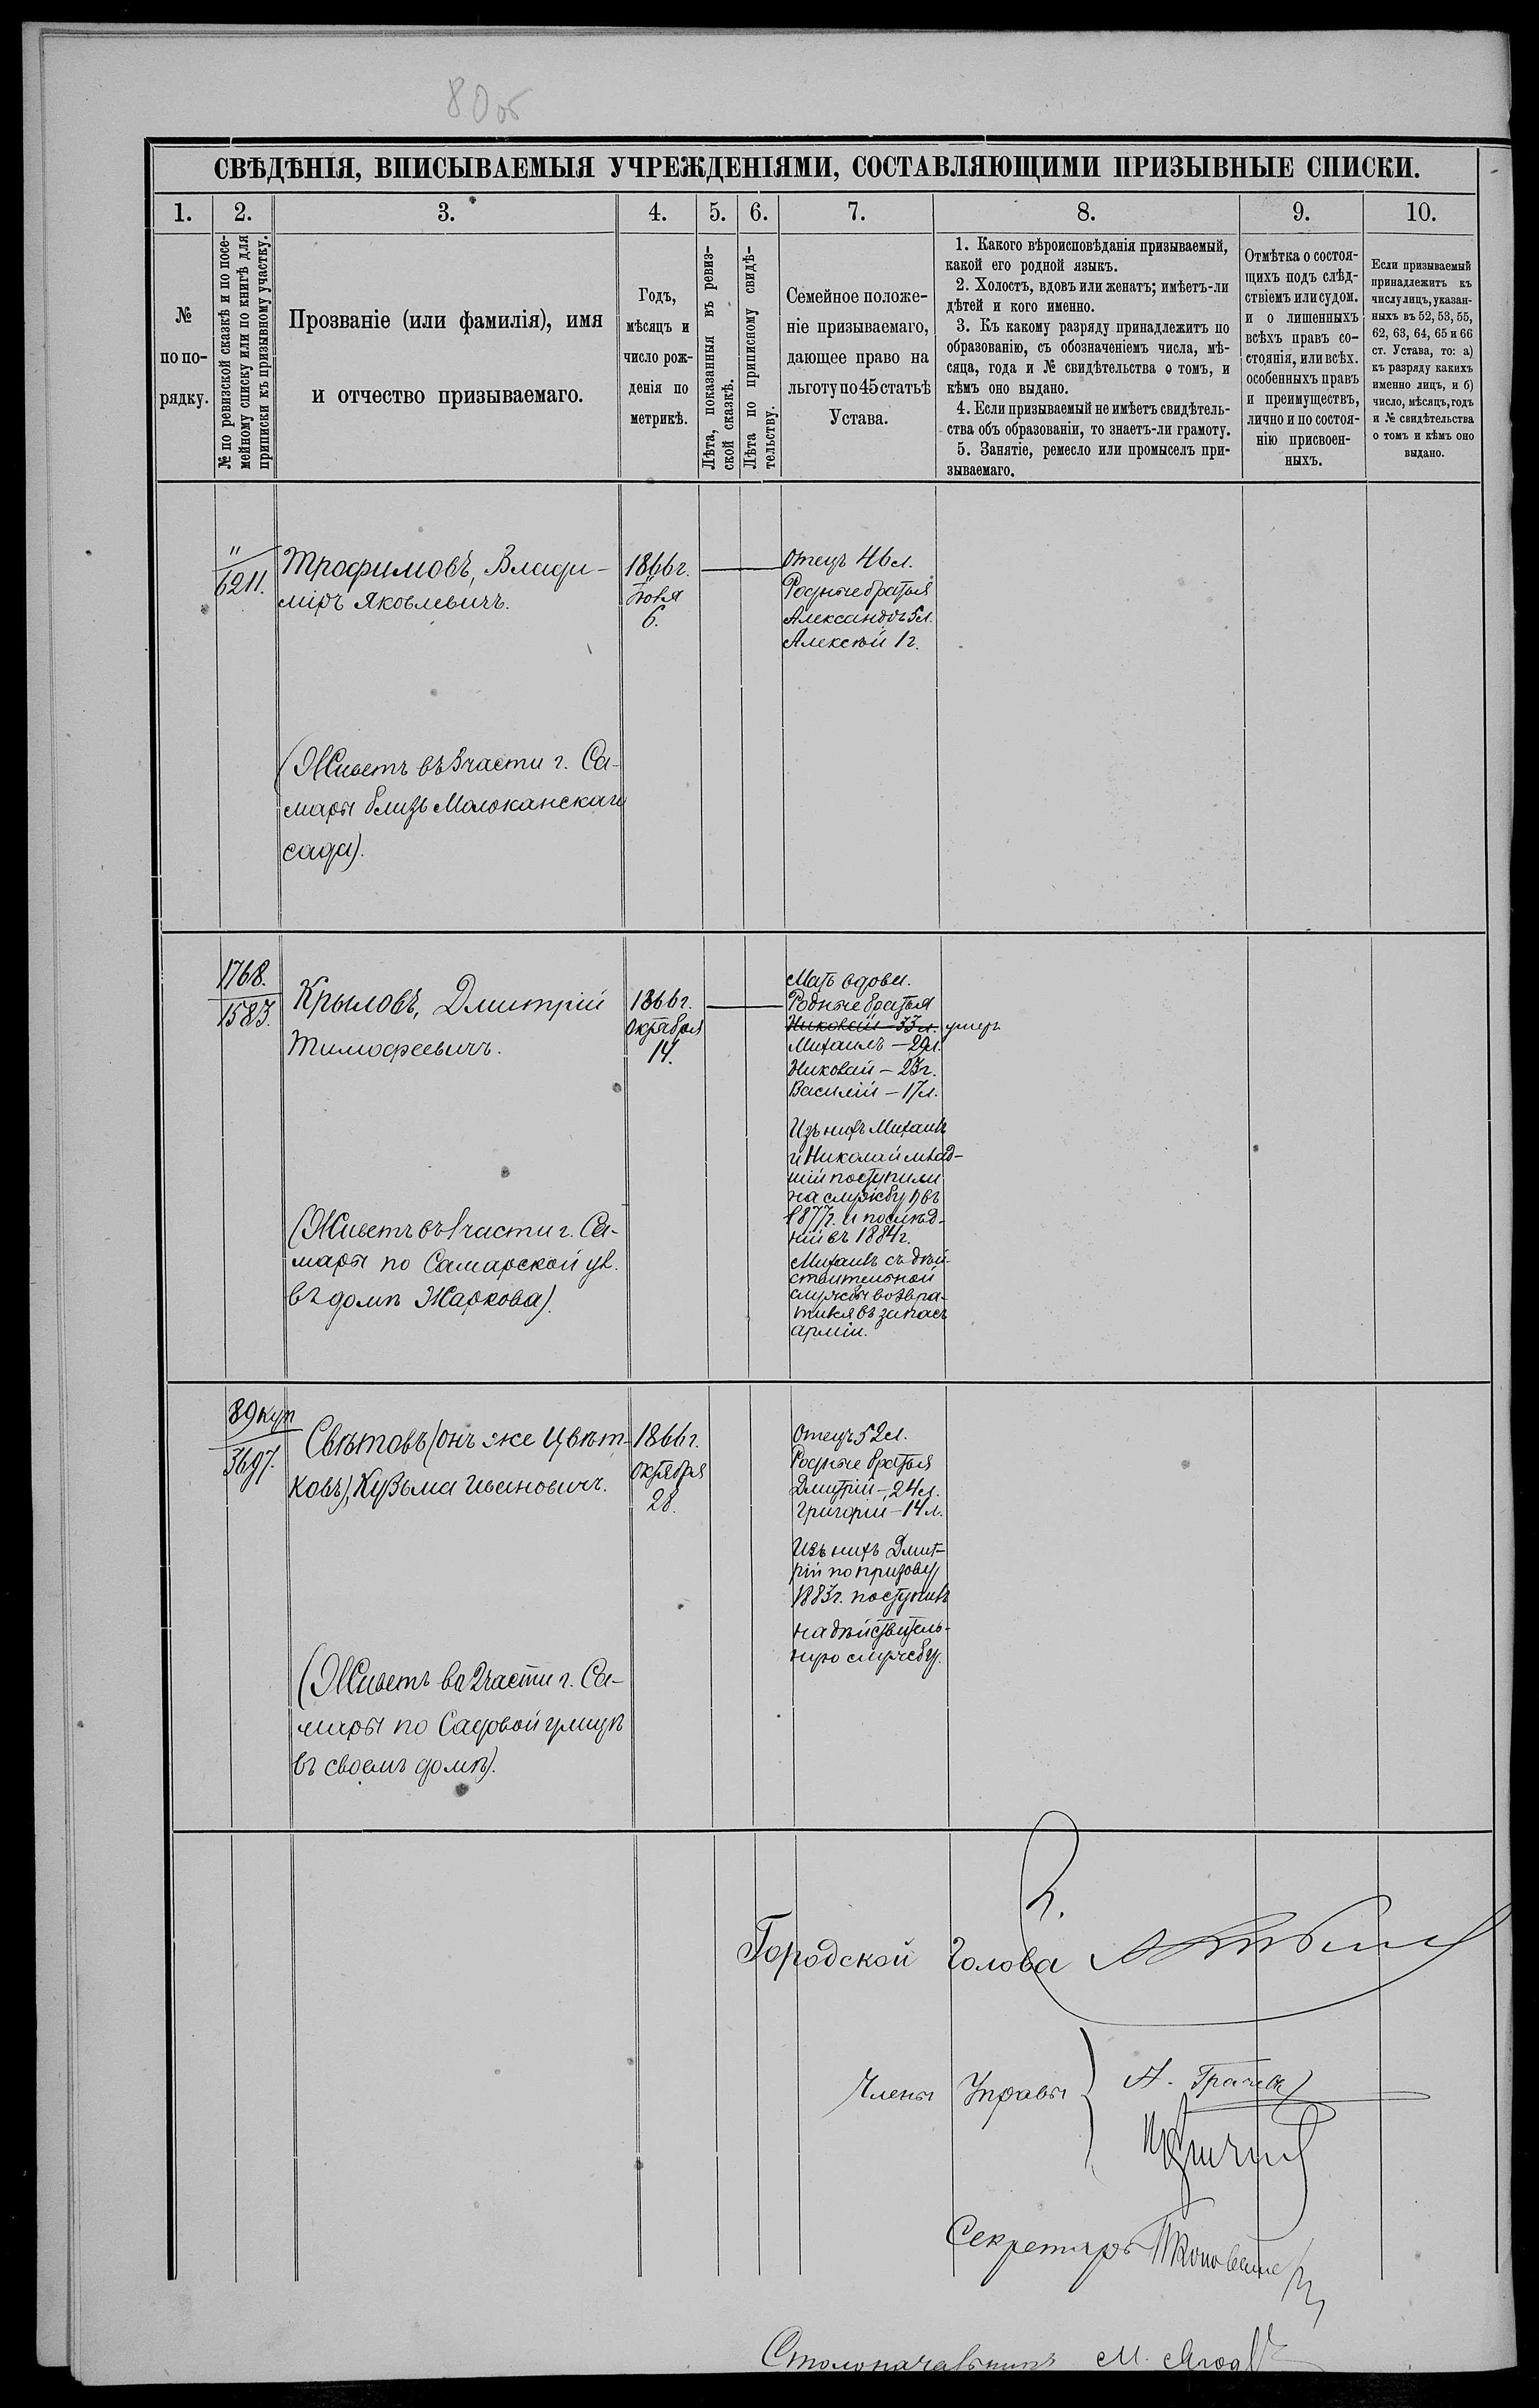 80об
СВѢДѢНІЯ, ВПИСЫВАЕМЫЯ УЧРЕЖДЕНІЯМИ, СОСТАВЛЯЮЩИМИ ПРИЗЫВНЫЕ СПИСКИ.
1. 2. 3. 4. 5. 6. 7. 8. 9. 10.
№
по по-
рядку.
№ по ревизской сказкѣ и по посе-
мейному списку или по книгѣ для
приписки къ призывному участку.
Прозваніе (или фамилія), имя
и отчество призываемаго.
Годъ,
мѣсяцъ и
число рож-
денія по
метрикѣ.
Лѣта, показанныя въ ревиз-
ской сказкѣ.
Лѣта по приписному свидѣ-
тельству.
Семейное положе-
ніе призываемаго,
дающее право на
льготу по 45 статьѣ
Устава.
1. Какого вѣроисповѣданія призываемый,
какой его родной языкъ.
2. Холостъ, вдовъ или женатъ; имѣетъ-ли
дѣтей и кого именно.
3. Къ какому разряду принадлежитъ по
образованію, съ обозначеніемъ числа, мѣ-
сяца, года и № свидѣтельства о томъ, и
кѣмъ оно выдано.
4. Если призываемый не имѣетъ свидѣтель-
ства объ образованіи, то знаетъ-ли грамоту.
5. Занятіе, ремесло или промыселъ при-
зываемаго.
Отмѣтка о состоя-
щихъ подъ слѣд-
ствіемъ или судом.
и о лишенныхъ
всѣхъ правъ со-
стоянія, или всѣх.
особенныхъ правъ
и преимуществъ,
лично и по состоя-
нію присвоен-
ныхъ.
Если призываемый
принадлежитъ къ
числу лицъ, указан-
ныхъ въ 52, 53, 55,
62, 63, 64, 65 и 66
ст. Устава, то: а)
къ разряду какихъ
именно лицъ, и б)
число, мѣсяцъ, годъ
и № свидѣтельства
о томъ и кѣмъ оно
выдано.
"
6211.
Трофимовъ, Влади-
міръ Яковлевичъ.
(Живетъ въ 3 части г. Са-
мары близь Молоканскаго
сада).
1866 г.
Іюля
6.
Отецъ 46 л.
Родные братья
Александръ 5 л.
Алексѣй 1 г.
1768.
1583.
Крыловъ, Дмитрій
Тимофеевичъ.
(Живетъ въ 1 части г. Са-
мары по Самарской ул.
въ домѣ Жаркова).
1866 г.
Октября
14.
Мать вдова.
Родные братья
Николай - 33 л. умеръ
Михаилъ - 29 л.
Николай - 23 г.
Василій - 17 л.
Изъ нихъ Михаилъ
и Николай млад-
шій поступили
на службу 1й въ
1877 г. и послѣд-
ній въ 1884 г.
Михаилъ съ дѣй-
ствительной
службы возвра-
тился въ запасъ
арміи.
89 куп
3697.
Свѣтовъ (онъ же Цвѣт-
ковъ), Кузьма Ивановичъ.
(Живетъ во 2 части г. Са-
мары по Садовой улицѣ
въ своемъ домѣ).
1866 г.
Октября
28.
Отецъ 52 л.
Родные братья
Дмитрій - 24 л.
Григорій - 14 л.
Изъ нихъ Дмит-
рій по призову
1883 г. поступилъ
на дѣйствитель-
ную службу.
Городской Голова
Члены Управы А. Грачевъ
Секретарь
Столоначальникъ М.